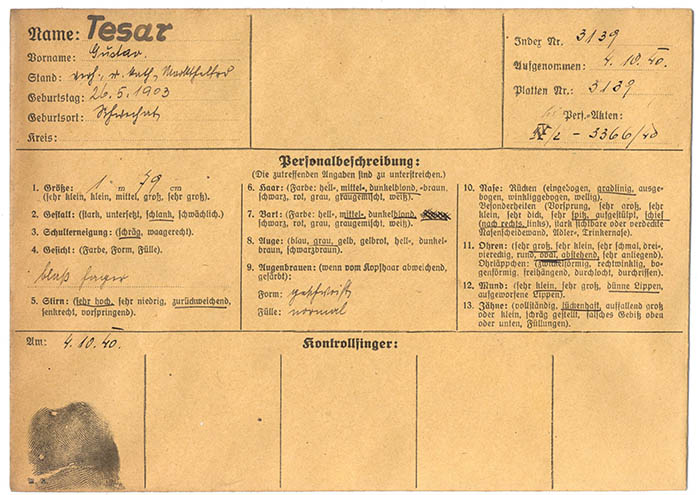 Name: Tesar
Vorname: Gustav.
Stand: verh., r. kath., Markthelfer
Geburtstag: 26.5.1903
Geburtsort: Schwechat
Kreis:
Index Nr. 3139
Aufgenommen: 4.10.40.
Platten Nr. 3139
Pers.-Akten:
IV/2 - 3366/40
Personalbeschreibung:
(Die zutreffenden Angaben sind zu unterstreichen.)
1. Größe: 1 m 79 cm
(sehr klein, klein, mittel, groß, sehr groß).
2. Gestalt: (stark, untersetzt, schlank, schwächlich).
3. Schulterneigung: (schräg, waagerecht).
4. Gesicht: (Farbe, Form, Fülle).
blaß hager
5. Stirn: (sehr hoch, sehr niedrig, zurückweichend,
senkrecht, vorspringend).
6. Haar: (Farbe: hell-, mittel-, dunkelblond, -braun,
schwarz, rot, grau, graugemischt, weiß).
7. Bart: (Farbe: hell-, mittel-, dunkelblond,
schwarz, rot, grau, graugemischt, weiß).
8. Auge: (blau, grau, gelb, gelbrot, hell-, dunkel-
braun, schwarzbraun).
9. Augenbrauen: (wenn vom Kopfhaar abweichend,
gefärbt):
Form: geschweift
Fülle: normal
10. Nase: Rücken (eingebogen, gradlinig, ausge-
bogen, winkliggebogen, wellig).
Besonderheiten (Vorsprung, sehr groß, sehr
klein, sehr dick, sehr spitz, aufgestülpt, schief
(nach rechts, links), stark sichtbare oder verdeckte
Nasenscheidewand, Adler-, Trinkernase).
11. Ohren: (sehr groß, sehr klein, sehr schmal, drei-,
viereckig, rund, oval, abstehend, sehr anliegend).
Ohrläppchen: (zwickelförmig, rechtwinklig, bo-
genförmig, freihängend, durchlocht, durchrissen).
12. Mund: (sehr klein, sehr groß, dünne Lippen,
aufgeworfene Lippen).
13. Zähne: (vollständig, lückenhaft, auffallend groß
oder klein, schräg gestellt, falsches Gebiß oben
oder unten, Füllungen).
Am: 4.10.40.
Kontrollfinger: